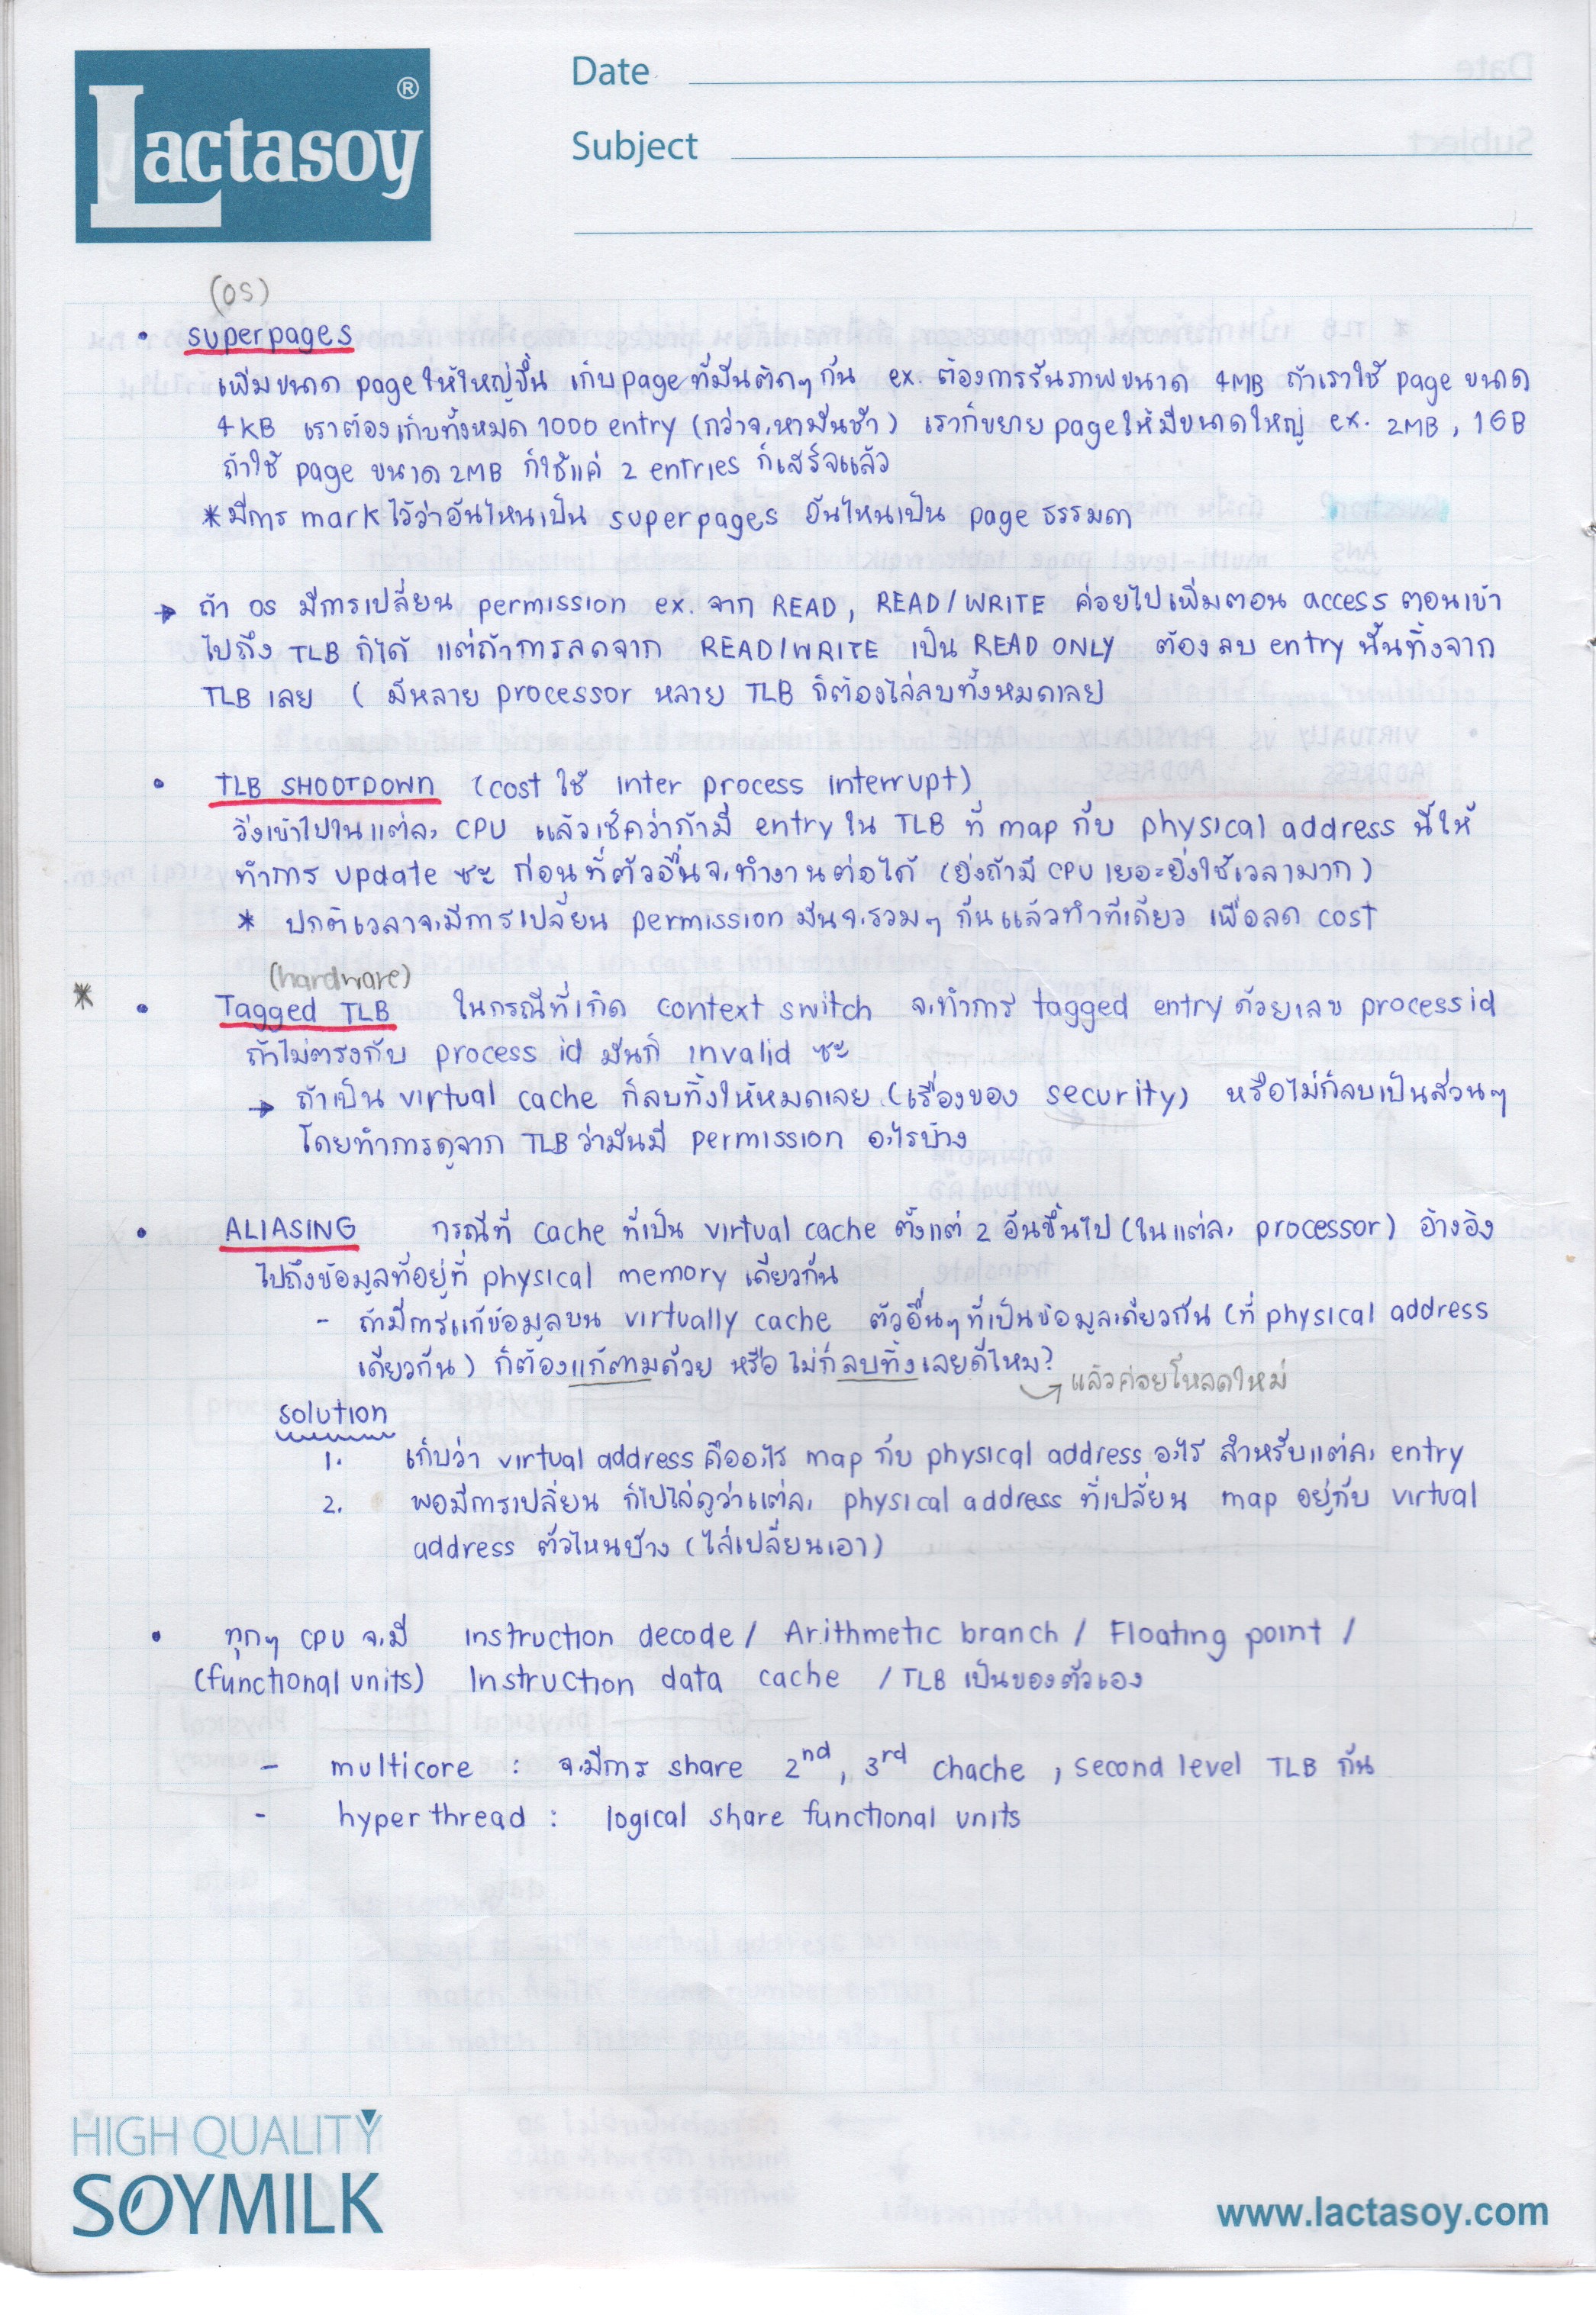 Lactasoy ®
Date
Subject
(OS)
• superpages
เพิ่มขนาด page ให้ใหญ่ขึ้น เก็บ page ที่มันติดๆ กัน ex. ต้องการรันภาพขนาด 4MB ถ้าเราใช้ page ขนาด
4KB เราต้องเก็บทั้งหมด 1000 entry (กว่าจะหามันช้า) เราก็ขยาย page ให้มีขนาดใหญ่ ex. 2MB, 1GB
ถ้าใช้ page ขนาด 2MB ก็ใช้แค่ 2 entries ก็เสร็จแล้ว
* มีการ mark ไว้ว่าอันไหนเป็น superpages อันไหนเป็น page ธรรมดา
→ ถ้า OS มีการเปลี่ยน permission ex. จาก READ, READ/WRITE ค่อยไปเพิ่มตอน access ตอนเข้า
ไปถึง TLB ก็ได้ แต่ถ้าการลดจาก READ/WRITE เป็น READ ONLY ต้องลบ entry นั้นทิ้งจาก
TLB เลย ( มีหลาย processor หลาย TLB ก็ต้องไล่ลบทั้งหมดเลย)
• TLB SHOOTDOWN (cost ใช้ inter process interrupt)
วิ่งเข้าไปในแต่ละ CPU แล้วเช็คว่าถ้ามี entry ใน TLB ที่ map กับ physical address นี้ให้
ทำการ update ซะ ก่อนที่ตัวอื่นจะทำงานต่อได้ (ยิ่งถ้ามี CPU เยอะยิ่งใช้เวลามาก)
* ปกติเวลาจะมีการเปลี่ยน permission มันจะรวมๆ กันแล้วทำทีเดียว เพื่อลด cost
(hardware)
* • Tagged TLB ในกรณีที่เกิด context switch จะทำการ tagged entry ด้วยเลข process id
ถ้าไม่ตรงกับ process id มันก็ invalid ซะ
→ ถ้าเป็น virtual cache ก็ลบทิ้งให้หมดเลย (เรื่องของ security) หรือไม่ก็ลบเป็นส่วนๆ
โดยทำการดูจาก TLB ว่ามันมี permission อะไรบ้าง
• ALIASING กรณีที่ cache ที่เป็น virtual cache ตั้งแต่ 2 อันขึ้นไป (ในแต่ละ processor) อ้างอิง
ไปถึงข้อมูลที่อยู่ที่ physical memory เดียวกัน
- ถ้ามีการแก้ข้อมูลบน virtually cache ตัวอื่นๆ ที่เป็นข้อมูลเดียวกัน (ที่ physical address
เดียวกัน) ก็ต้องแก้ตามด้วย หรือ ไม่ก็ลบทิ้งเลยดีไหม?
→ แล้วค่อยโหลดใหม่
solution
1. เก็บว่า virtual address คืออะไร map กับ physical address อะไร สำหรับแต่ละ entry
2. พอมีการเปลี่ยน ก็ไปไล่ดูว่าแต่ละ physical address ที่เปลี่ยน map อยู่กับ virtual
address ตัวไหนบ้าง (ไล่เปลี่ยนเอา)
• ทุกๆ CPU จะมี instruction decode / Arithmetic branch / Floating point /
(functional units) Instruction data cache / TLB เป็นของตัวเอง
- multicore : จะมีการ share 2nd, 3rd chache, second level TLB กัน
- hyper thread : logical share functional units
HIGH QUALITY
SOYMILK
www.lactasoy.com